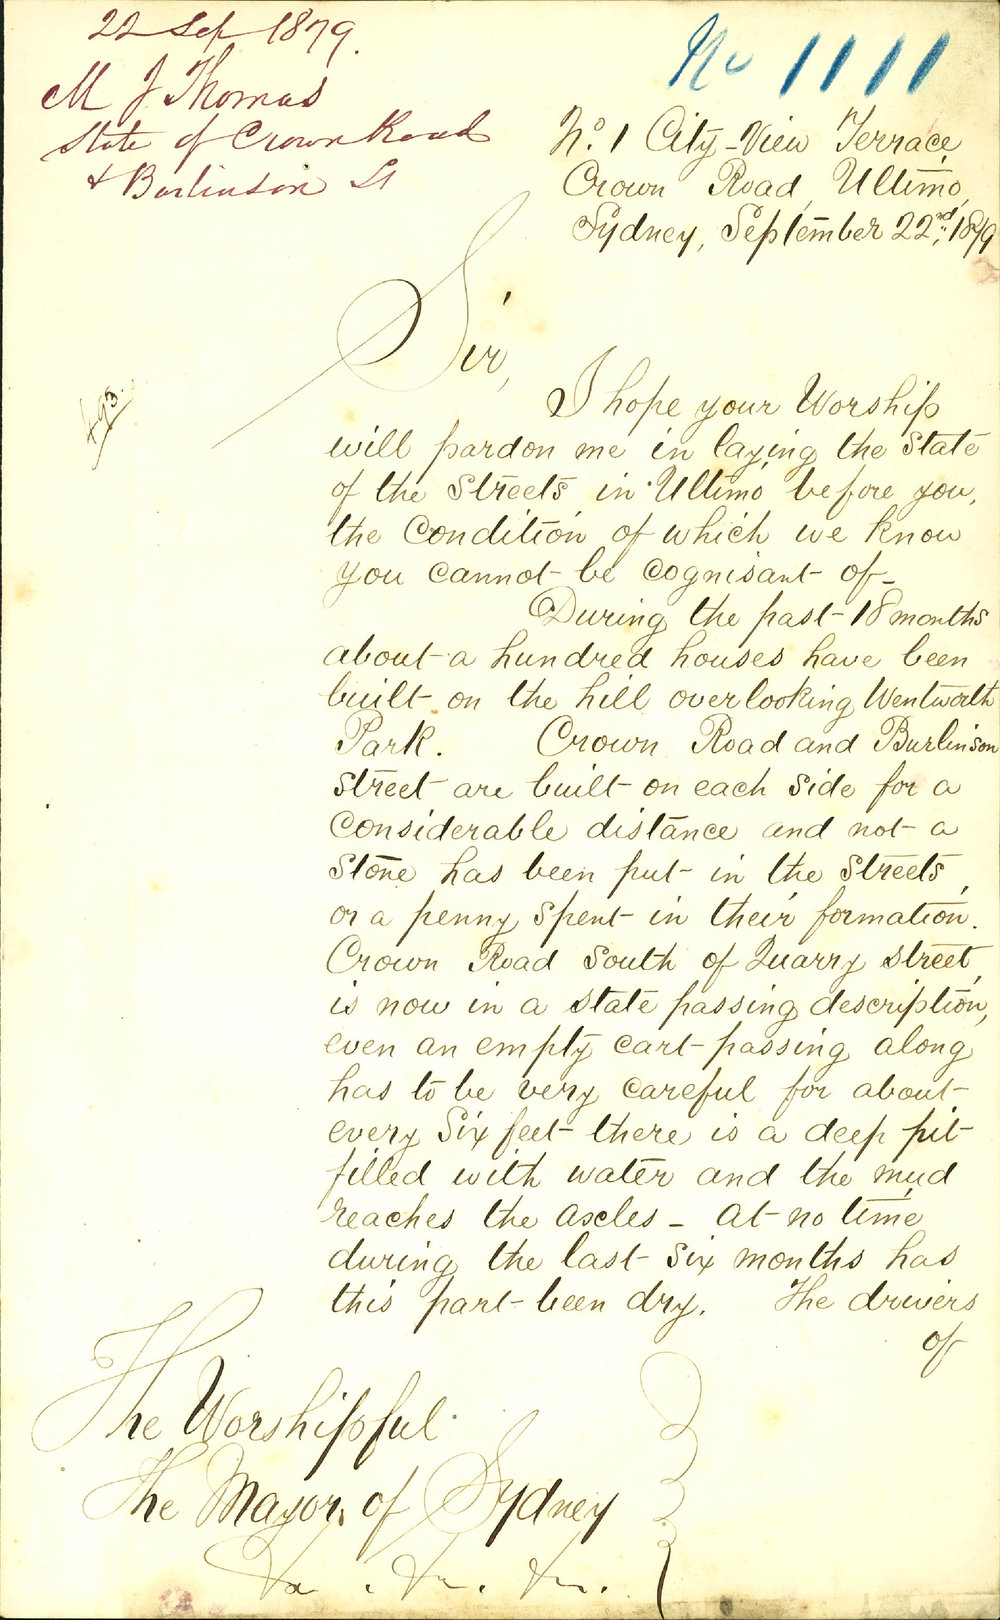 22 Sep 1879.
M J Thomas
State of Crown Road
& Burlinson St
No 1111
No. 1 City-View Terrace,
Crown Road, Ultimo,
Sydney, September 22nd, 1879
Sir,
I hope your Worship
will pardon me in laying the State
of the Streets in Ultimo before you,
the Condition of which we know
you cannot be cognisant of—
During the past 18 months
about a hundred houses have been
built on the hill overlooking Wentworth
Park. Crown Road and Burlinson
Street are built on each side for a
Considerable distance and not a
Stone has been put in the Streets,
or a penny spent in their formation.
Crown Road South of Quarry Street,
is now in a state passing description,
even an empty cart passing along
has to be very careful for about
every Six feet there is a deep pit
filled with water and the mud
reaches the axles — at no time
during the last Six months has
this part been dry. The drivers
of
The Worshipful
The Mayor, of Sydney